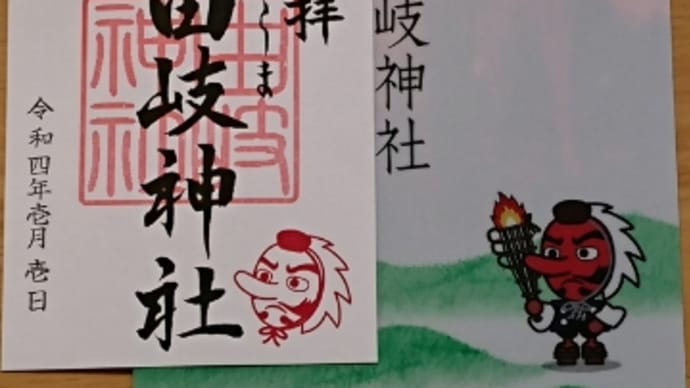 拝
由岐神社
由岐
神社
令和四年壱月壱日
岐神社